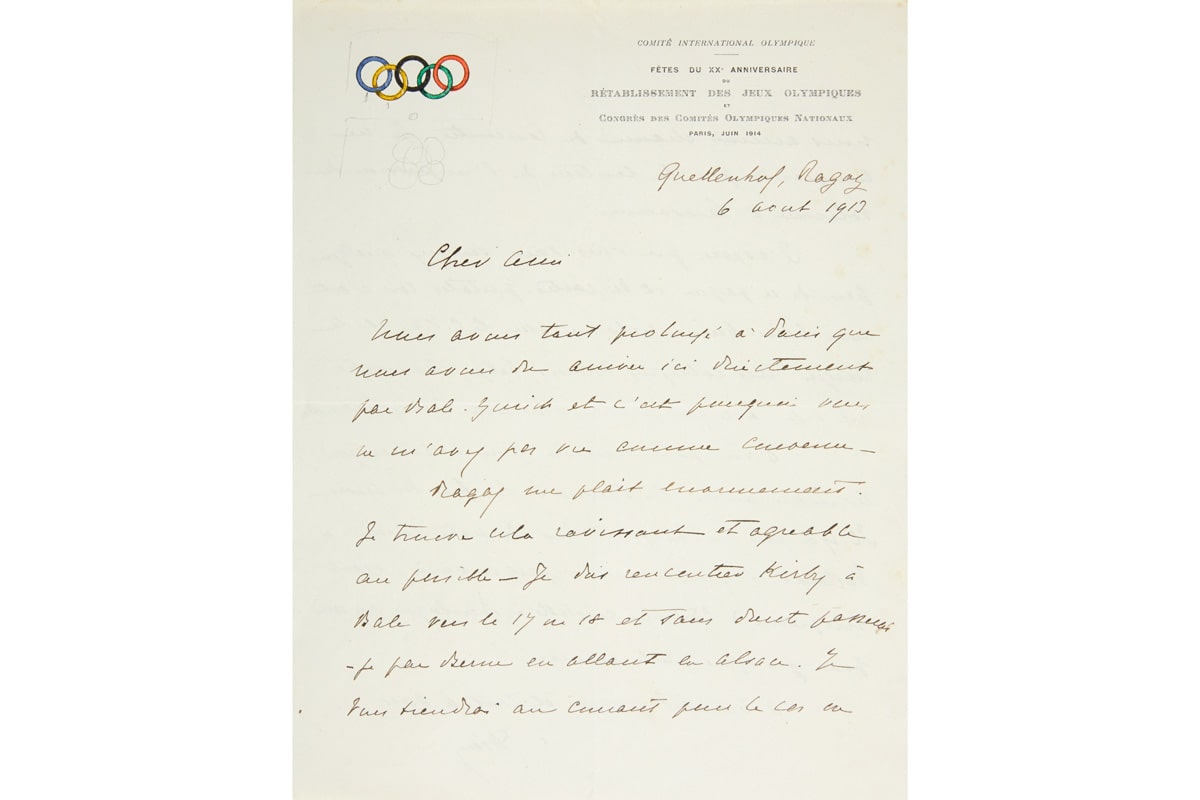 COMITÉ INTERNATIONAL OLYMPIQUE
FÊTES DU XXᵉ ANNIVERSAIRE
DU
RÉTABLISSEMENT DES JEUX OLYMPIQUES
ET
CONGRÈS DES COMITÉS OLYMPIQUES NATIONAUX
PARIS, JUIN 1914
Quellenhof, Ragaz
6 aout 1913
Cher Ami
Nous avons tant prolongé à Paris que
nous avons du arriver ici directement
par Bale. Zurich et c'est pourquoi vous
ne m'avez pas vu comme convenu –
Ragaz me plait enormement.
Je trouve cela ravissant et agreable
au possible – Je dois rencontrer Kirby à
Bale vers le 17 ou 18 et sans doute passerai
-je par Berne en allant en alsace. Je
vous tiendrai au courant pour le cas ou